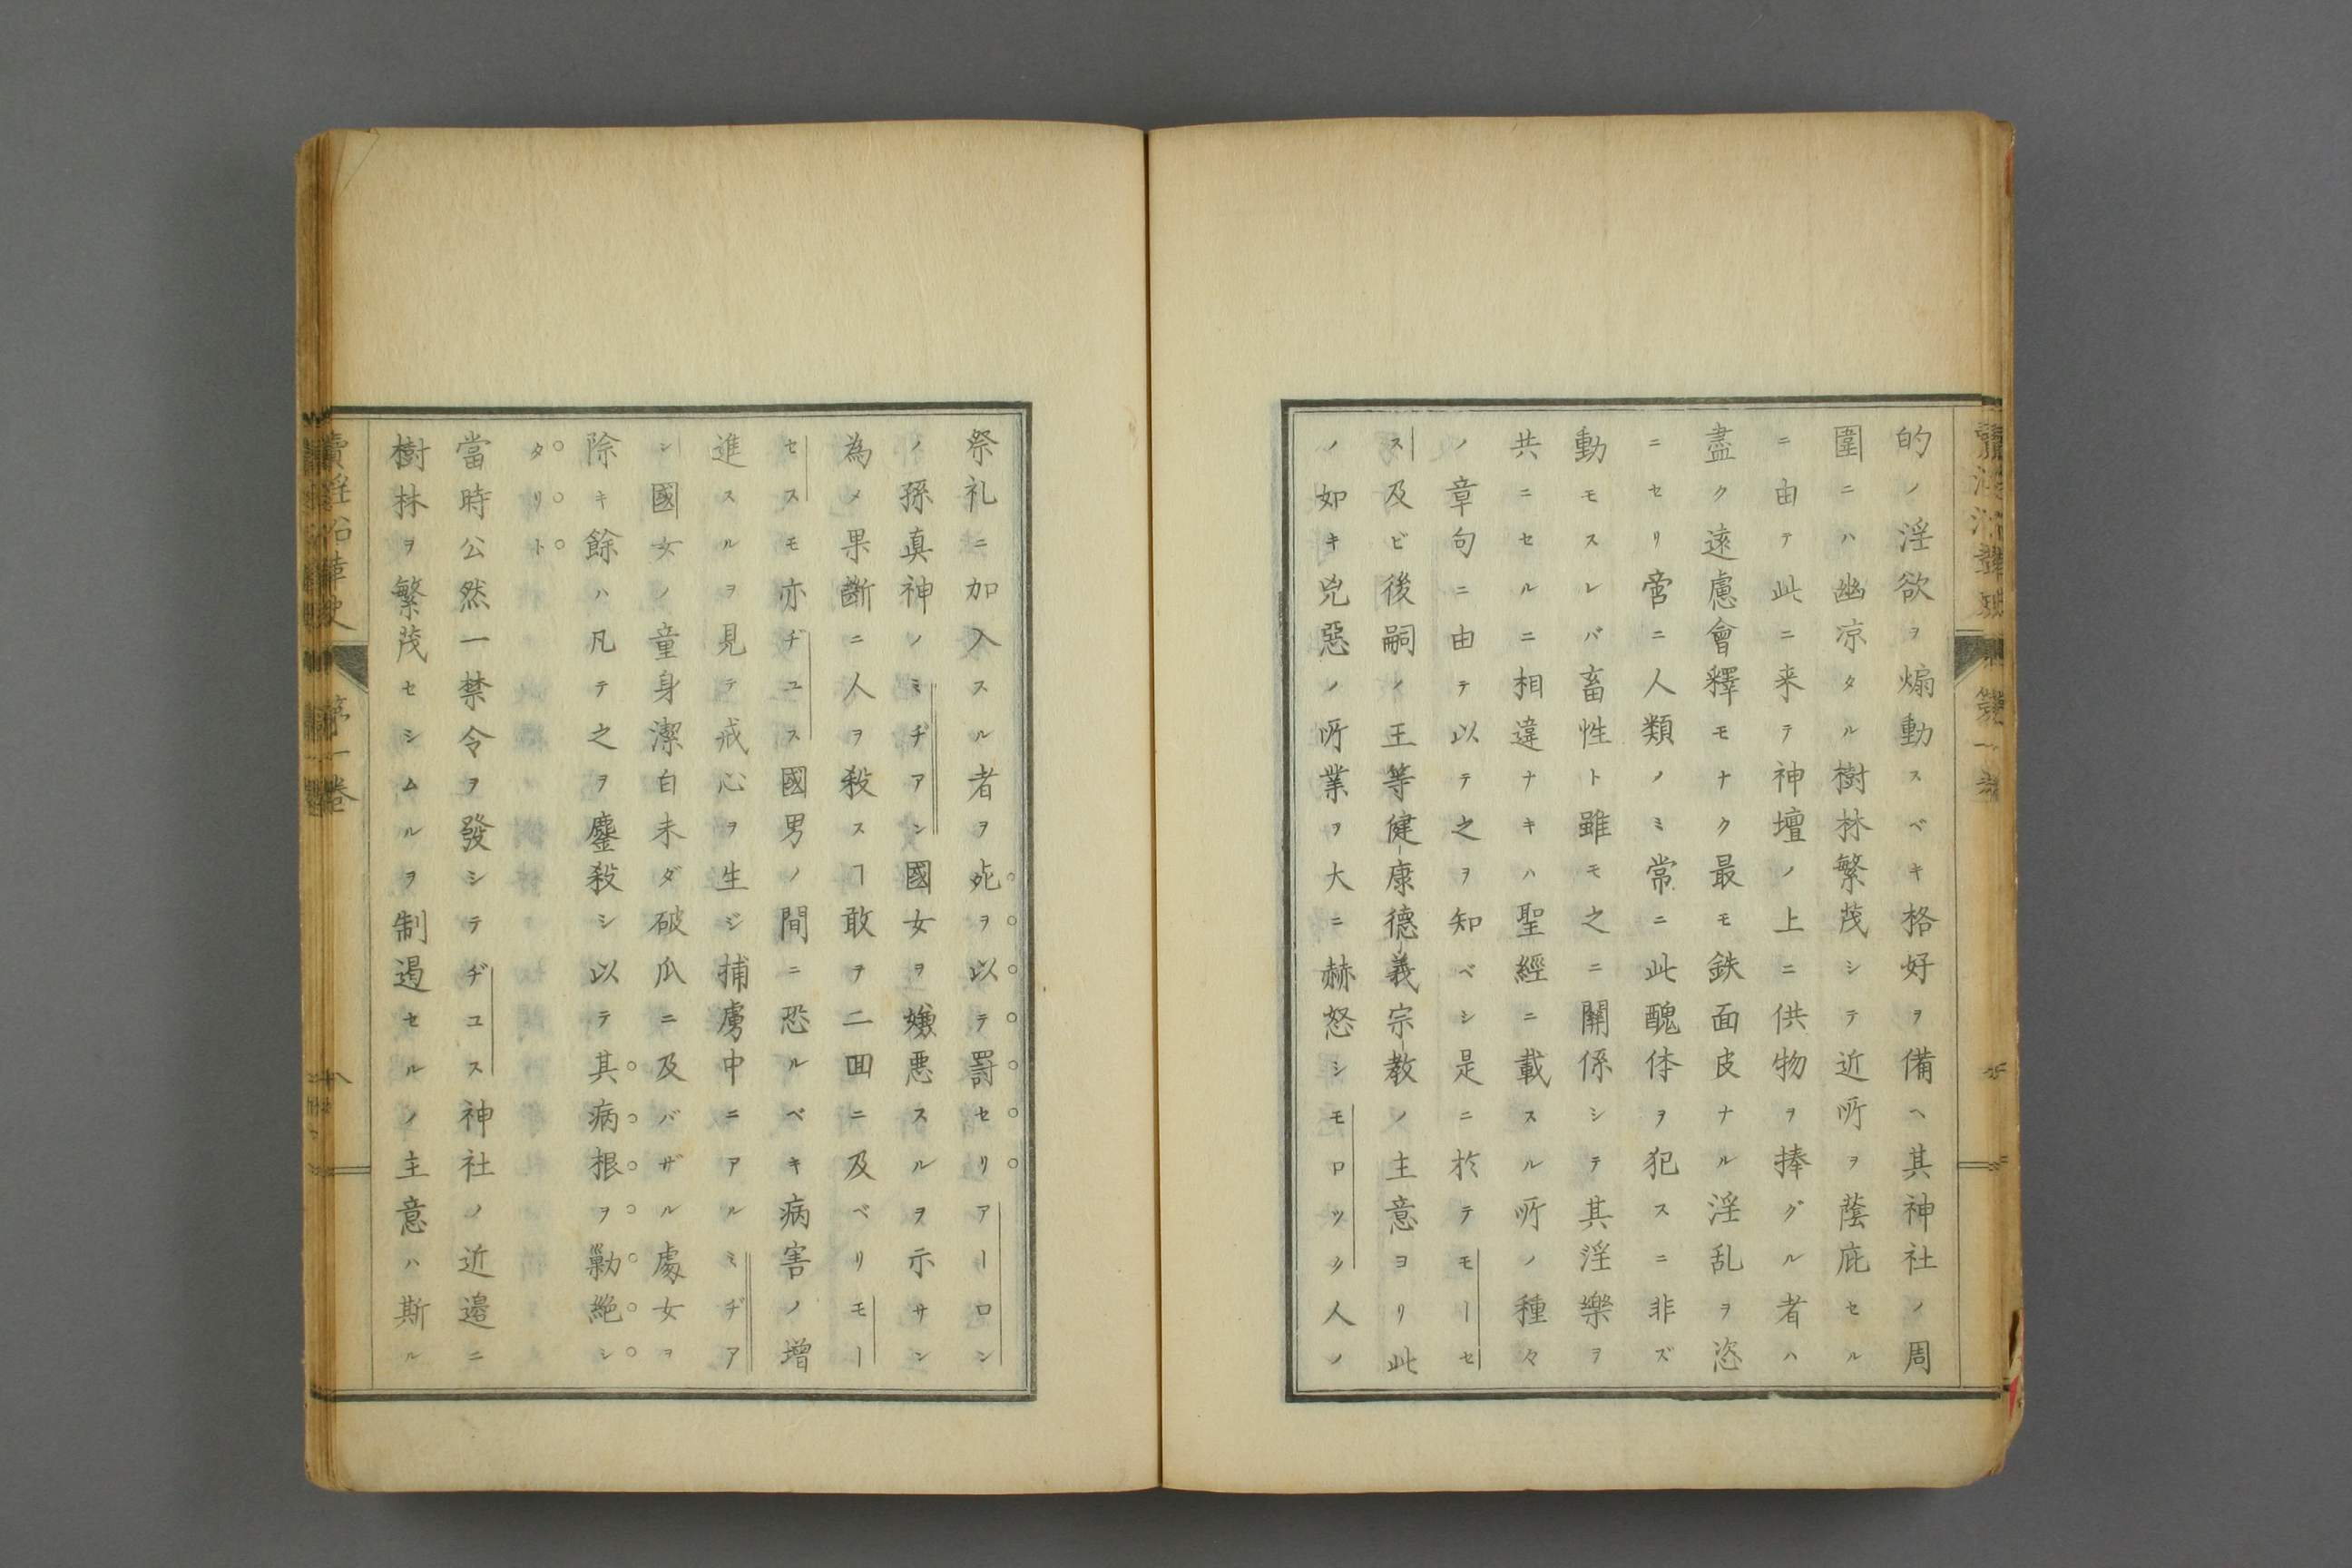 的ノ淫欲ヲ煽動スベキ格好ヲ備ヘ其神社ノ周
圍ニハ幽凉タル樹林繁茂シテ近所ヲ蔭庇セル
ニ由テ此ニ来テ神壇ノ上ニ供物ヲ捧グル者ハ
盡ク遠慮會釋モナク最モ鉄面皮ナル淫乱ヲ恣
ニセリ啻ニ人類ノミ常ニ此醜体ヲ犯スニ非ズ
動モスレバ畜性ト雖モ之ニ關係シテ其淫樂ヲ
共ニセルニ相違ナキハ聖經ニ載スル所ノ種々
ノ章句ニ由テ以テ之ヲ知ベシ是ニ於テモーセ
ス及ビ後嗣ノ王等健康德義宗教ノ主意ヨリ此
ノ如キ兇惡ノ所業ヲ大ニ赫怒シモロック人ノ
祭礼ニ加入スル者ヲ死ヲ以テ罰セリアーロン
ノ孫真神ノミヂアン國女ヲ嫌悪スルヲ示サン
為メ果斷ニ人ヲ殺スヿ敢テ二回ニ及ベリモー
セスモ亦ヂユス國男ノ間ニ恐ルベキ病害ノ增
進スルヲ見テ戒心ヲ生ジ捕虜中ニアルミヂア
ン國女ノ童身潔白未ダ破瓜ニ及バザル處女ヲ
除キ餘ハ凡テ之ヲ鏖殺シ以テ其病根ヲ勦絶シ
タリト
當時公然一禁令ヲ發シテヂユス神社ノ近邉ニ
樹林ヲ繁茂セシムルヲ制遏セルノ主意ハ斯ル
賣淫沿革史
第一卷
八